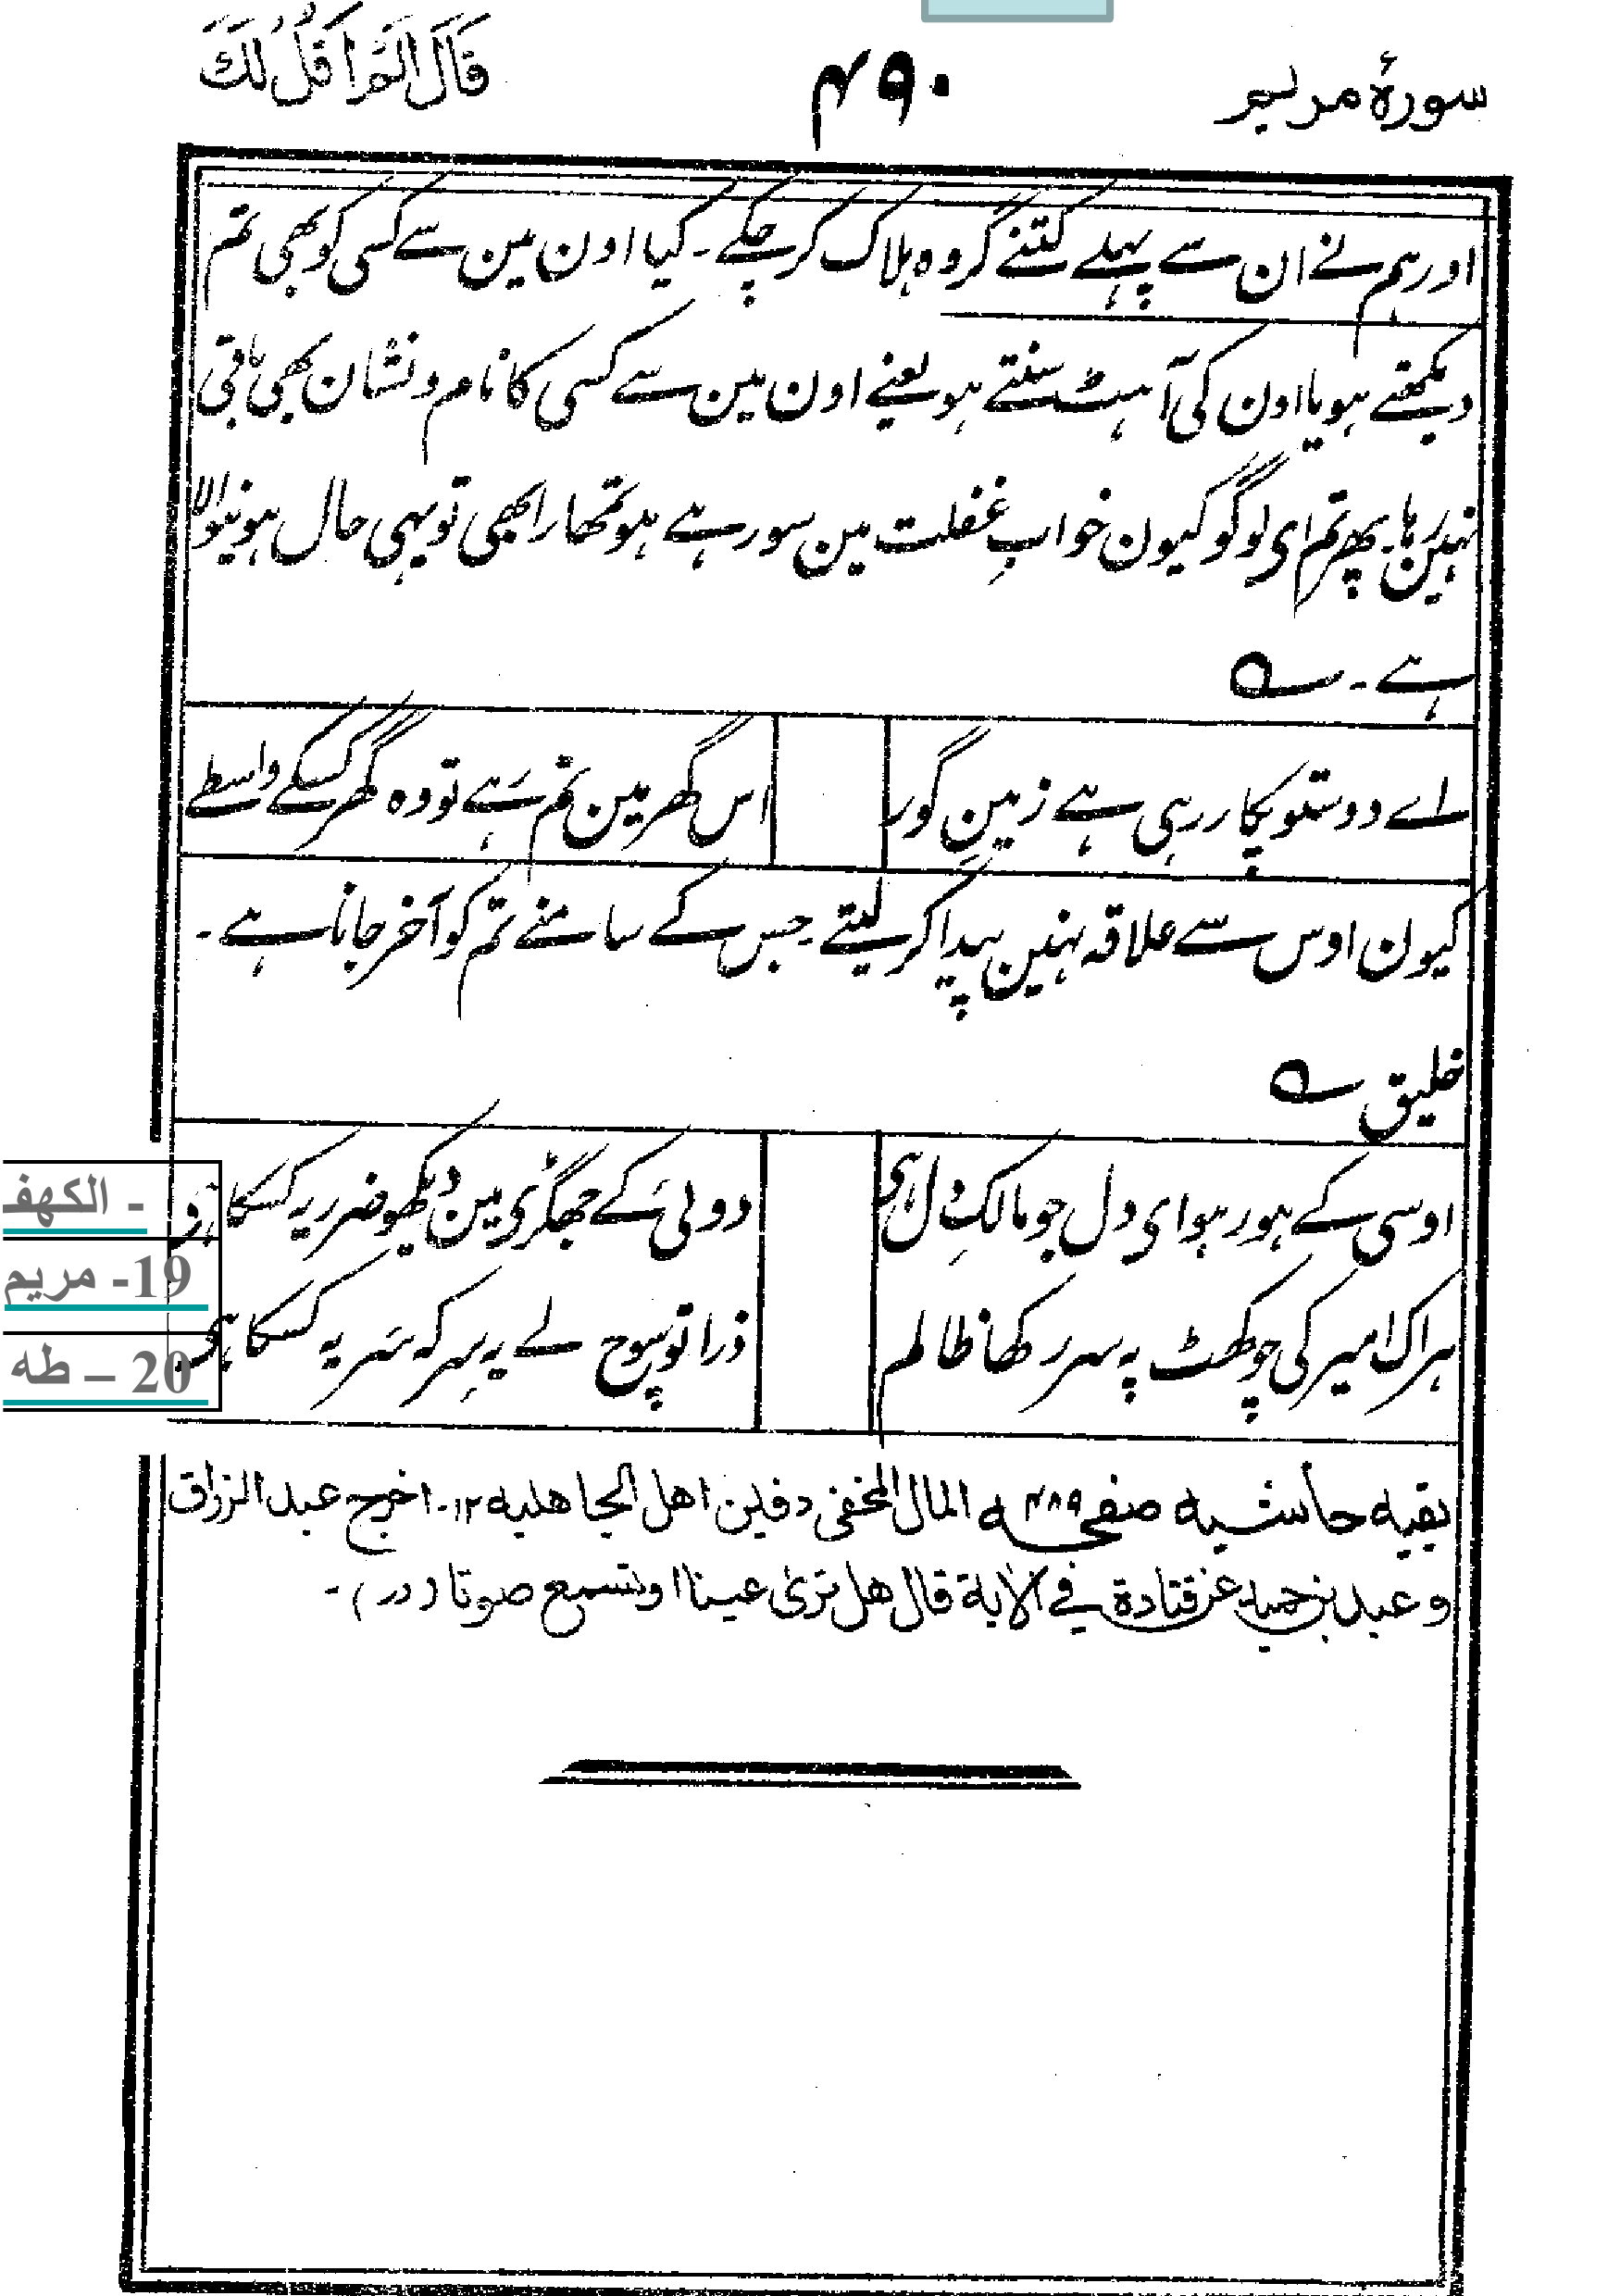 سورۂ مریم
۴۹۰
قَالَ اَلَمْ اَقُلْ لَكَ
اور ہم نے ان سے پہلے کتنے گروہ ہلاک کر چکے ۔ کیا اون مین سے کسی کو بھی تم
دیکھتے ہو یا اون کی آہٹ سنتے ہو یعنے اون مین سے کسی کا نام و نشان بھی باقی
نہین رہا۔ پھر تم ای لوگو کیون خوابِ غفلت مین سو رہے ہو تمھارا بھی تو یہی حال ہونیوالا
ہے ۔ ؎
اے دوستو پکار رہی ہے زمینِ گور
اس گھر مین تم رہے تو وہ گھر کسکے واسطے
کیون اوس سے علاقہ نہین پیدا کر لیتے ۔ جس کے سامنے تم کو آخر جانا ہے ۔
خلیق ؎
اوسی کے ہو رہو ای دل جو مالکِ دل ہی
دوئی کے جھگڑی مین دیکھو ضرر یہ کسکا ہی
ہر اک امیر کی چوکھٹ پہ سر رکھا ظالم
ذرا تو سوچ لے یہ سر کہ سر یہ کسکا ہی
بقیه حاشیه صفحه ۴۸۹ المال المخفی دفین اهل الجاهلیه ۱۲۔ اخرج عبد الرزاق
و عبد بن حمید عن قتادة فی الآیة قال هل تریٰ عینا او تسمع صوتا (در) ۔
- الكهف
19- مريم
20 – طه